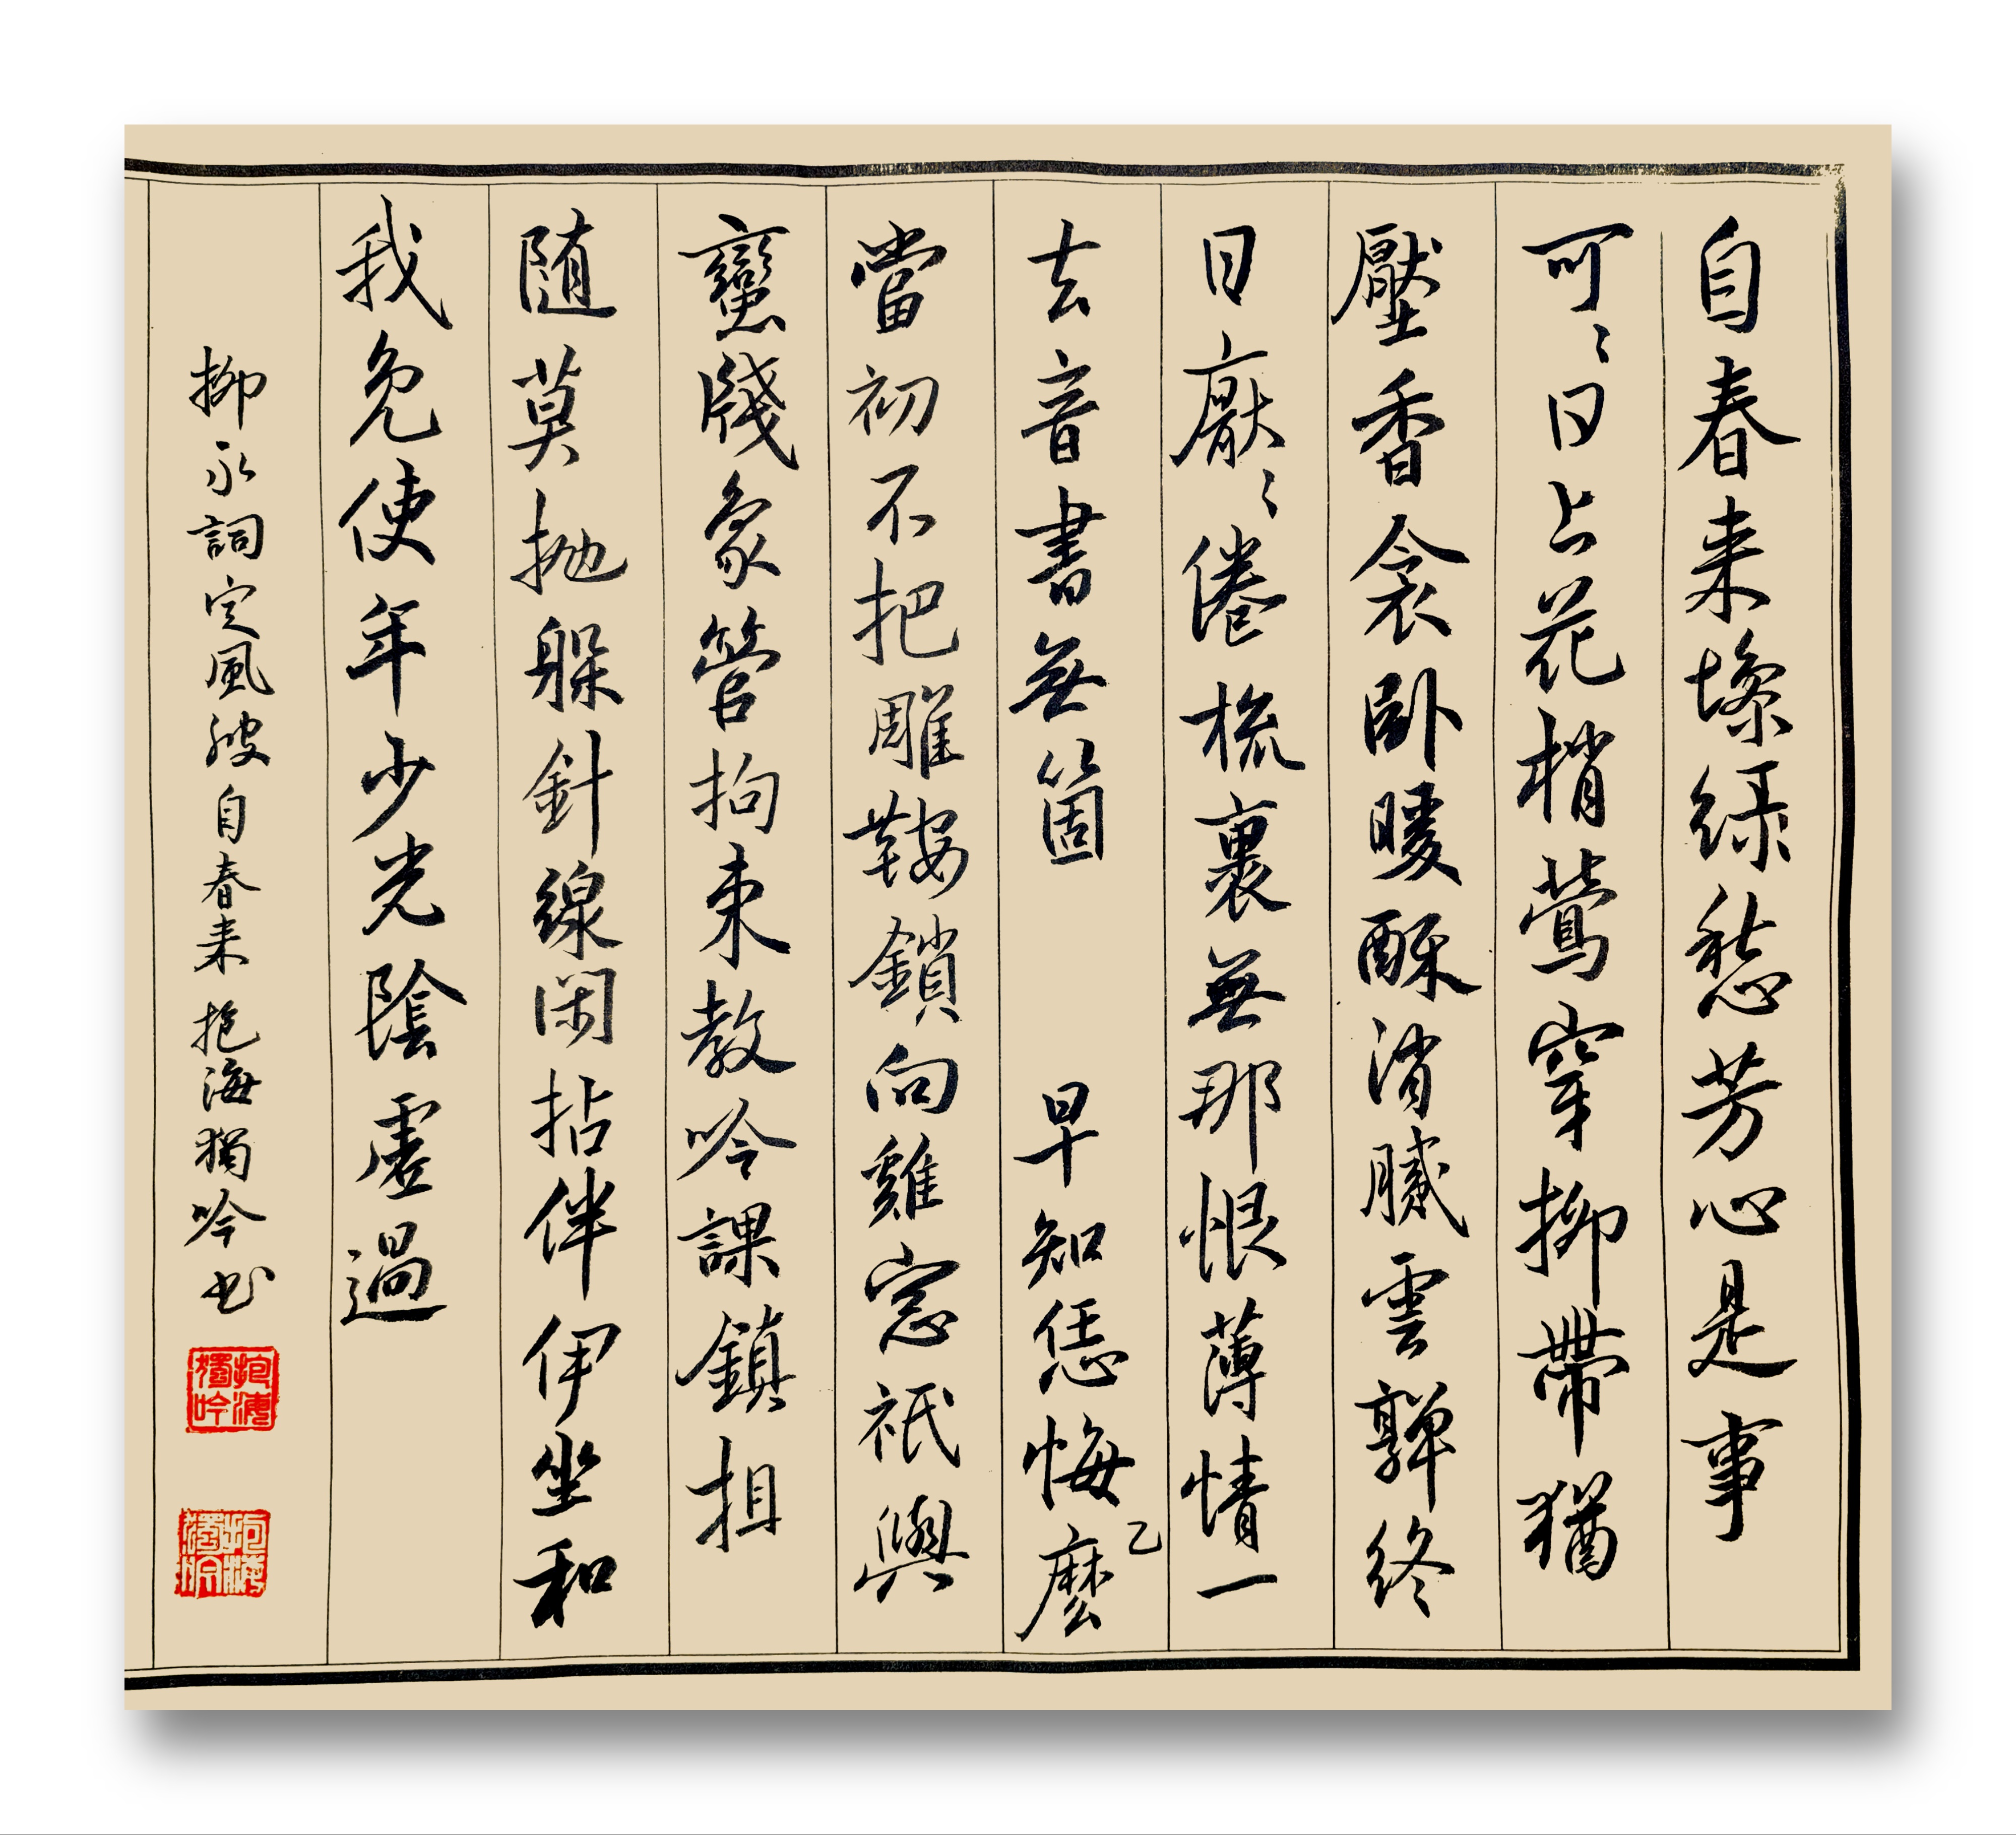 自春来慘緑愁芳心是事
可〻日上花梢鶯穿柳帶猶
壓香衾卧暖酥消膩雲嚲終
日厭〻倦梳裹無那恨薄情一
去音書無箇 早知恁悔乙麼
當初不把雕鞍鎖向雞窓祇與
蠻牋象管拘束教吟課鎮相
随莫抛躲針線閑拈伴伊坐和
我免使年少光陰虛過
柳永詞定風波自春来 抱海獨吟书
抱海獨吟
抱海獨吟